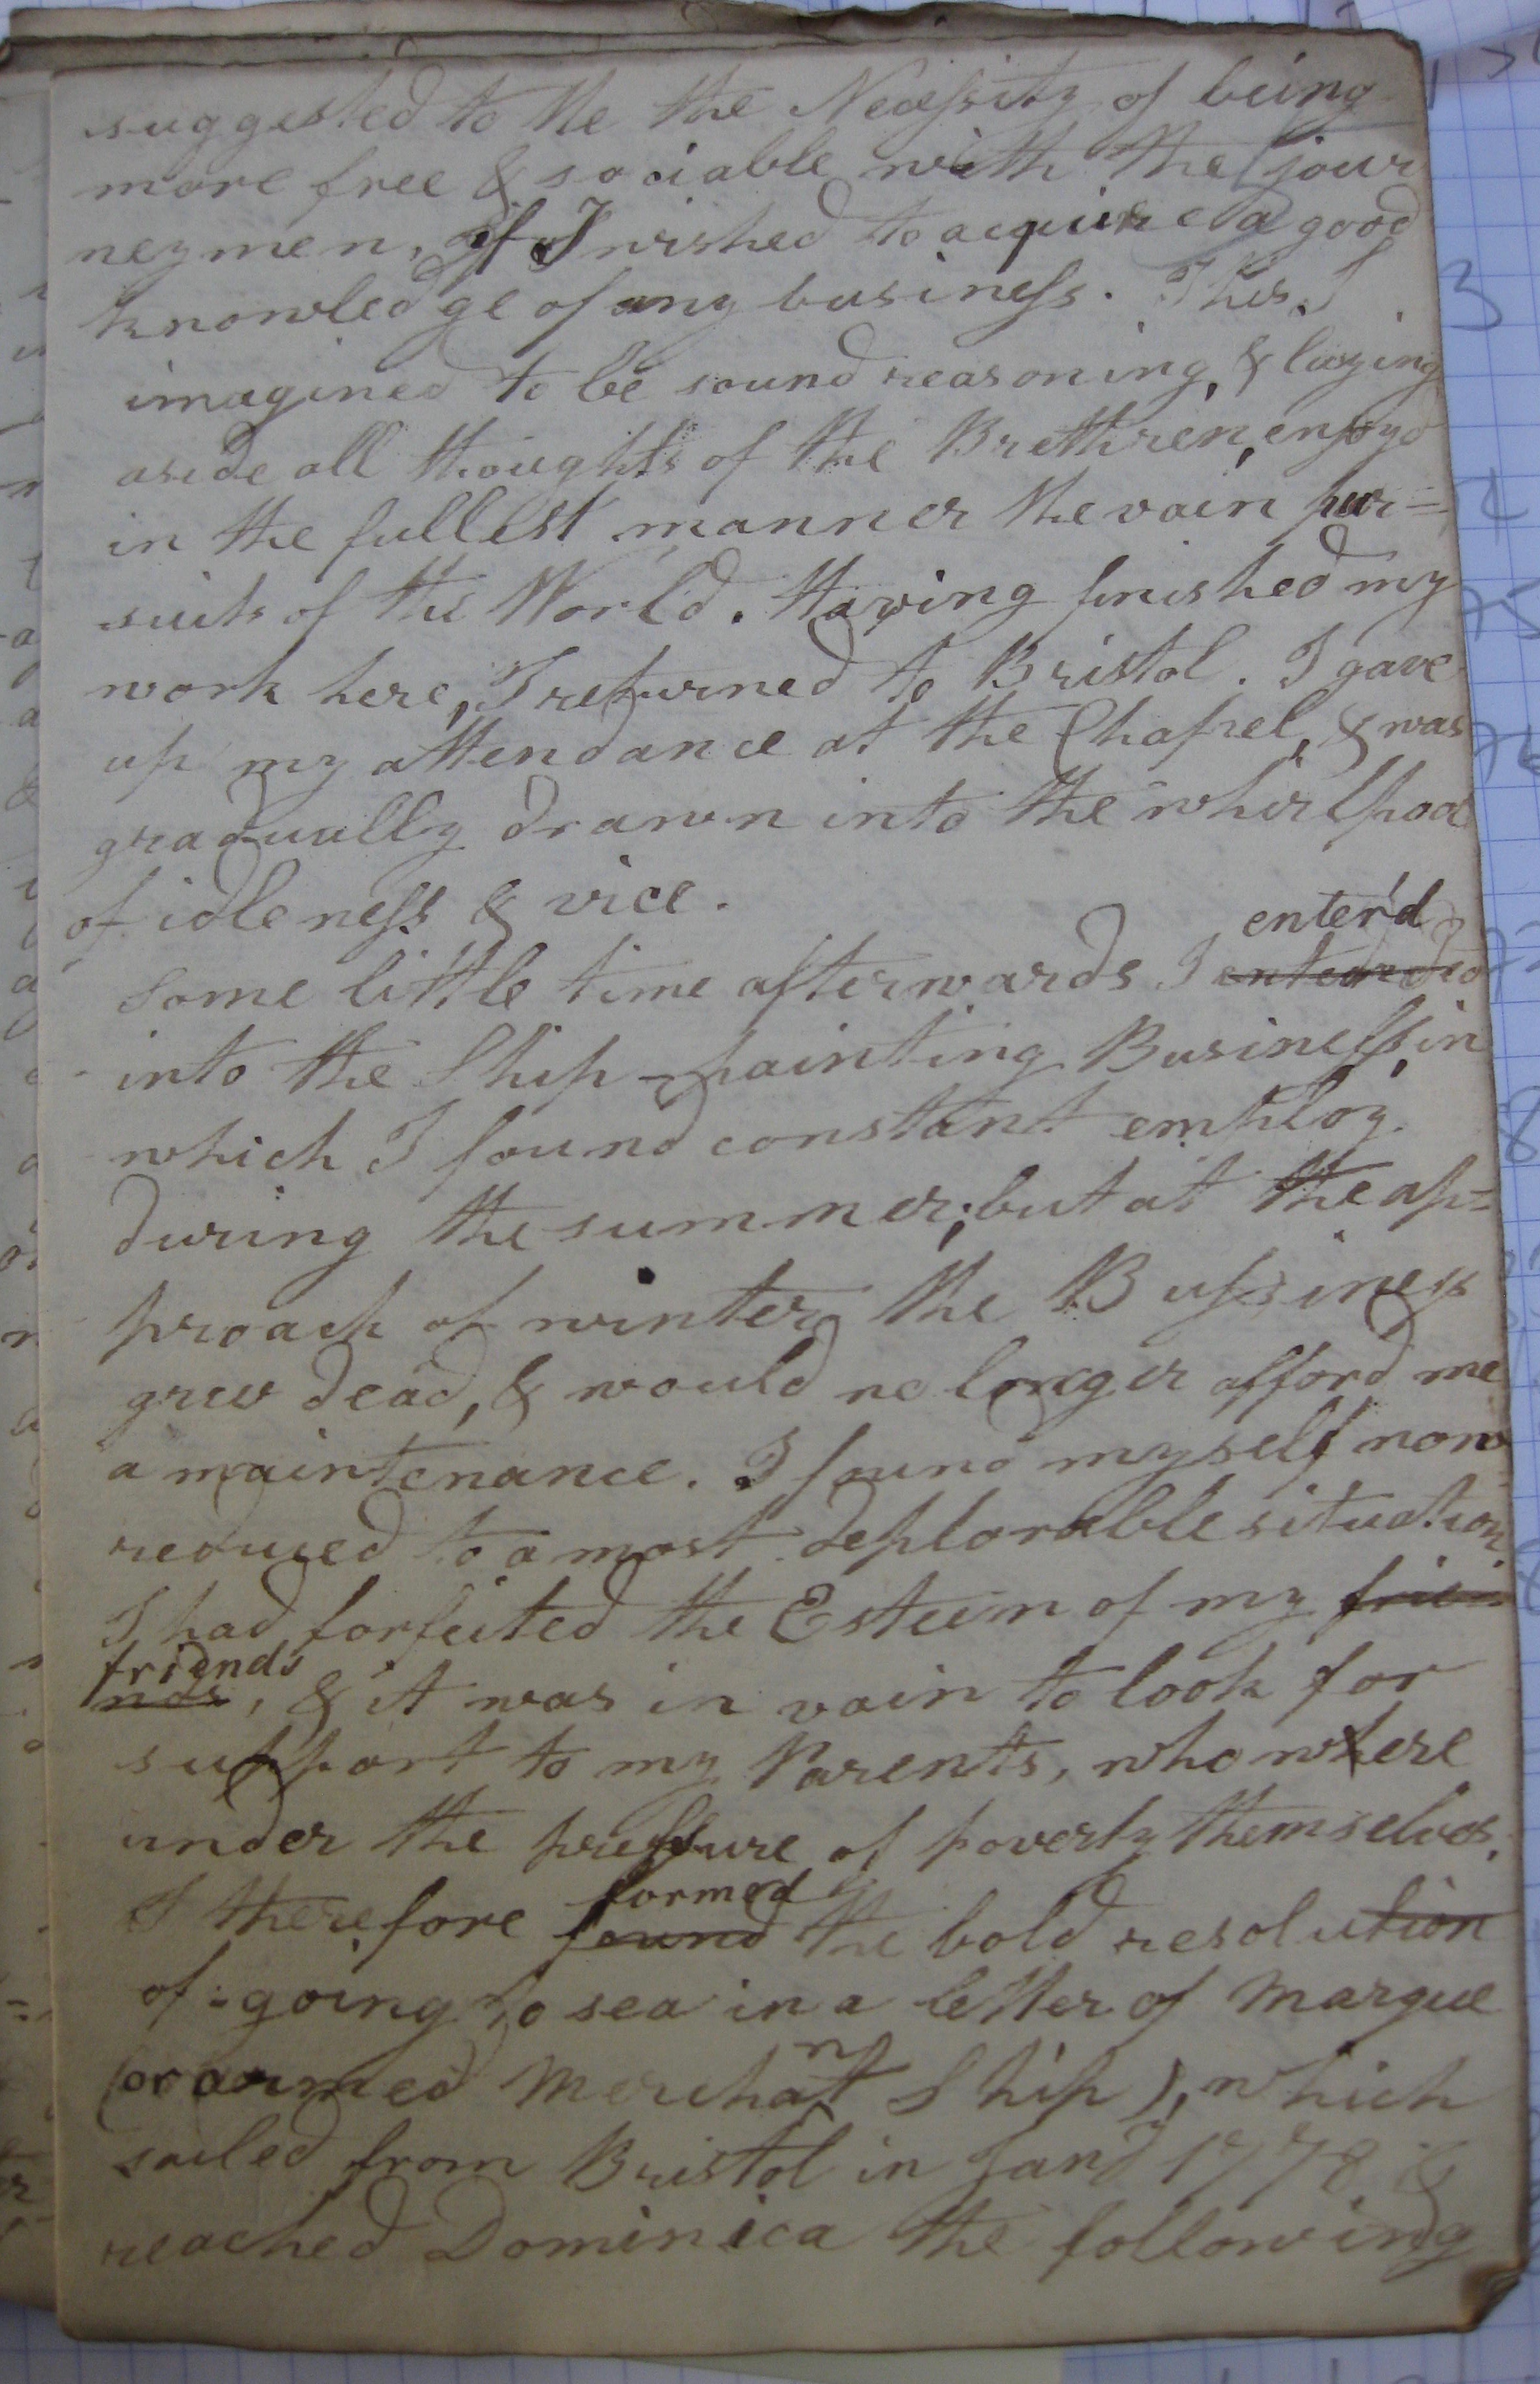 suggested to Me the Necessity of being
more free & sociable with the jour
neymen, if I wished to acquire a good
knowledge of my business. This I
imagined to be sound reasoning, & laying
aside all thoughts of the Brethren, enjoyd
in the fullest manner the vain pur=
suits of the World. Having finished my
work here, I returned to Bristol. I gave
up my attendance at the Chapel, & was
gradually drawn into the whirlpool
of idleness & vice.
enter'd
Some little time afterwards I
into the Ship-painting Business, in
which I found constant employ
during the summer; but at the ap=
proach of winter the Bussiness
grew dead, & would no longer afford me
a maintenance. I found myself now
reduced to a most deplorable situation.
I had forfeited the Esteem of my frie=
friends
nds, & it was in vain to look for
support to my Parents, who where
under the pressure of poverty themselves.
formed
I therefore found the bold resolution
of going to sea in a letter of Marque
(or armed Merchant Ship), which
sailed from Bristol in Jany 1778 &
reached Dominica the following